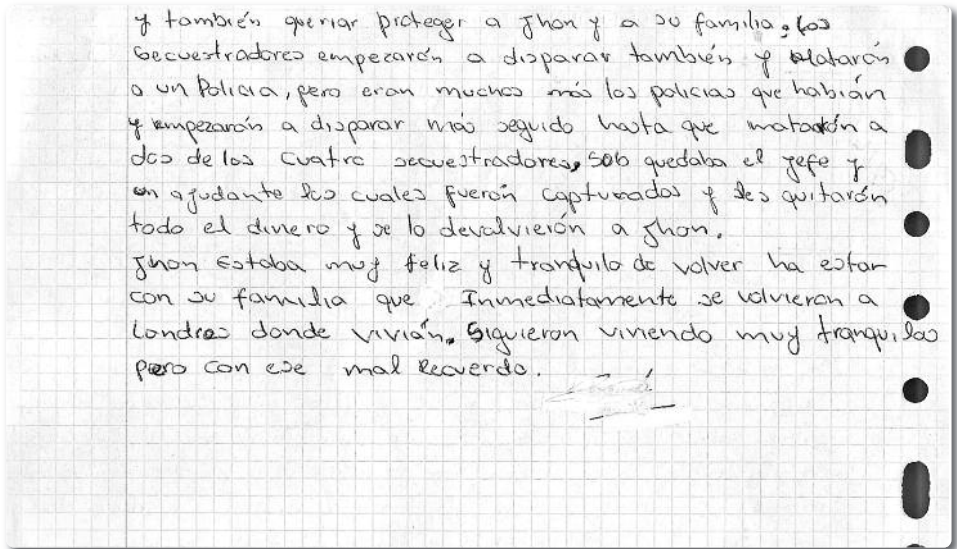 y también querian proteger a Jhon y a su familia, los
secuestradores empezarón a disparar también y matarón
a un Policia, pero eran muchos más los policias que habián
y empezarón a disparar más seguido hasta que matarón a
dos de los cuatro secuestradores, solo quedaba el jefe y
un ayudante los cuales fuerón capturados y les quitarón
todo el dinero y se lo devolvierón a Jhon.
Jhon Estaba muy feliz y tranquilo de volver ha estar
con su familia que Inmediatamente se volvieron a
Londres donde vivián. Siguieron viviendo muy tranquilos
pero con ese mal Recuerdo.